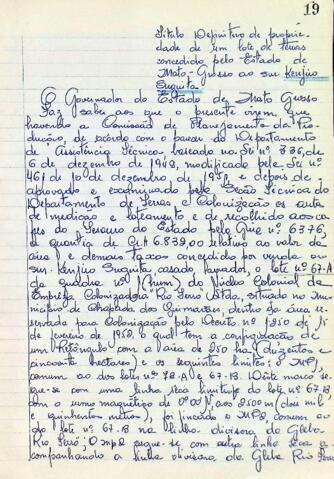 19
Titulo Definitivo de proprie-
dade de um lote de terras
concedido pelo Estado de
Mato-Grosso ao snr. Kenjiro
Suguita.
O Governador do Estado de Mato Grosso
Faz saber aos que o presente virem, que
havendo a Comissão de Planejamento da Pro-
dução, de acordo com o parecer do Departamento
de Assistência Técnica, baseado na Lei nº 336, de
6 de dezembro de 1949, modificada pela Lei nº
461 de 10 de dezembro, de 195 e depois de
aprovado e examinado pela Seção Técnica do
Departamento de Terras e Colonização os autos
de medição e loteamento e de recolhido aos co-
fres do Tesouro do Estado pela Guia nº 6376,
a quantia de Cr$ 6.839,00 relativo ao valor da
area e demais taxas concedido por venda ao
snr. Kenjiro Suguita, casado, lavrador, o lote nº 67-A
da quadra nº 1 (hum), do Núcleo Colonial da
Empresa Colonizadora Rio Ferro Ltda, situado no Mu-
nicipio de Chapada dos Guimarães, dentro da área re-
servada para Colonização pelo Decreto nº 1250 de
de fevereiro de 1952, o qual tem a configuração de
um Retângulo com a área de 250 ha (duzentos
cincoenta hectares) e os seguintes limites; o MP,
comum ao dos lotes nº 72-A e 67-B. Dêste marco se-
gue-se com uma linha sêca limitrofe ao lote nº 67-B
com o rumo magnético de 0º00'N, aos 2500 m (dois mil
e quinhentos metros), foi fincado o MP, comum ao
do lote nº 67-B na linha divisora da Gleba
Rio Ferro; O mp segue-se com outra linha sêca a-
companhando a linha divisora da Gleba Rio Ferro